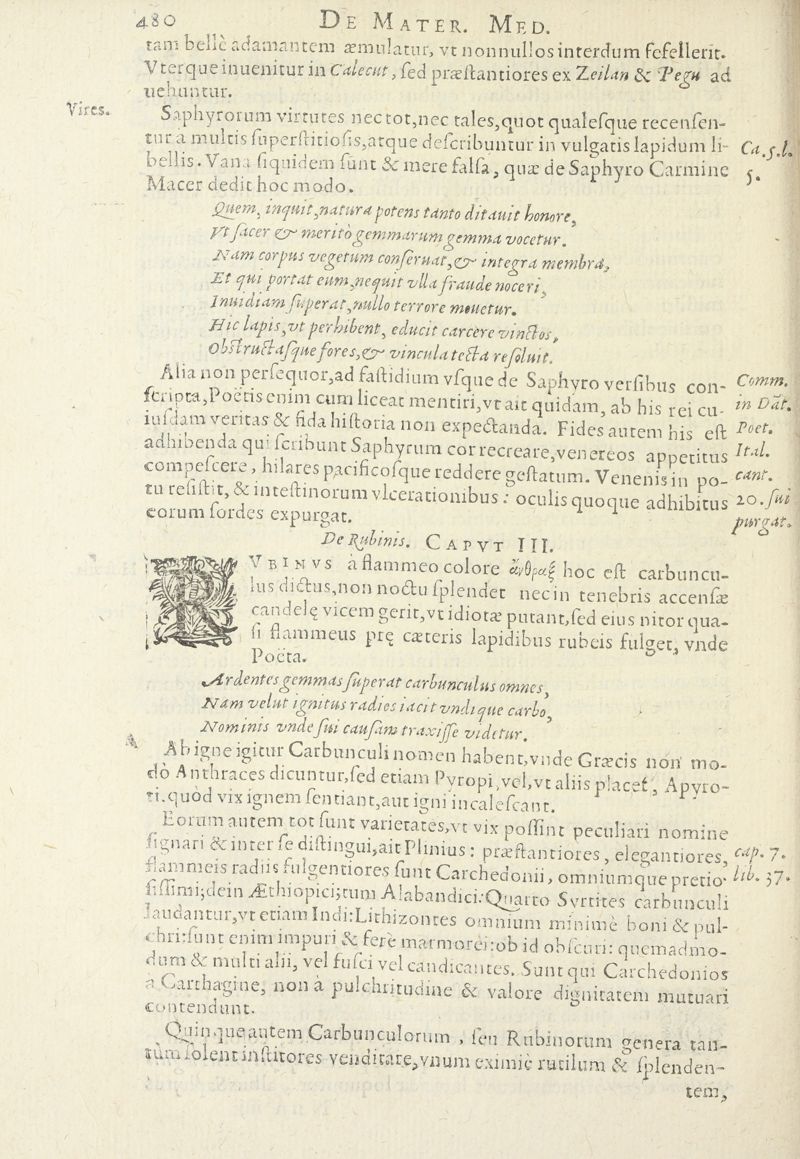 480 DE MATER. MED.
tam bellè adamantem æmulatur, vt nonnullos interdum fefellerit.
Vterque inuenitur in Calecut, sed præstantiores ex Zeilan & Pegu ad
uehuntur.
Vires.
Saphyrorum virtutes nec tot, nec tales, quot qualesque recensen-
tur a multis superstitiosis, atque describuntur in vulgatis lapidum li-
Ca. 5. l.
bellis. Vana siquidem sunt & mere falsa, quæ de Saphyro Carmine
5.
Macer dedit hoc modo.
Quem, inquit, natura potens tanto ditauit honore,
Vt sacer & meritò gemmarum gemma vocetur.
Nam corpus vegetum conseruat, & integra membra,
Et qui portat eum, nequit vlla fraude noceri,
Inuidiam superat, nullo terrore mouetur.
Hic lapis, vt perhibent, educit carcere vinctos,
Obstructasque fores, & vincula tecta resoluit.
Alia non persequor, ad fastidium vsque de Saphyro versibus con-
Comm.
scripta, Poetis enim cum liceat mentiri, vt ait quidam, ab his rei cu-
in Dãt.
iusdam veritas & fida historia non expectanda. Fides autem his est
Poet.
adhibenda qui scribunt Saphyrum cor recreare, venereos appetitus
Ital.
compescere, hilares pacificosque reddere gestatum. Venenis in po-
cant.
tu resistit, & intestinorum vlcerationibus: oculis quoque adhibitus
20. sui
eorum sordes expurgat.
purgat.
De Rubinis. CAPVT III.
RVBINVS à flammeo colore ἄνθραξ hoc est carbuncu-
lus dictus, non noctu splendet nec in tenebris accensæ
candelę vicem gerit, vt idiotæ putant, sed eius nitor qua-
si flammeus prę cæteris lapidibus rubeis fulget, vnde
Poeta.
Ardentes gemmas superat carbunculus omnes,
Nam velut ignitus radios iacit vndique carbo,
Nominis vnde sui causam traxisse videtur.
Ab igne igitur Carbunculi nomen habent, vnde Græcis non mo-
do Anthraces dicuntur, sed etiam Pyropi, vel, vt aliis placet, Apyro-
ti. quod vix ignem sentiant, aut igni incalescant.
Eorum autem tot sunt varietates, vt vix possint peculiari nomine
signari & inter se distingui, ait Plinius: præstantiores, elegantiores,
cap. 7.
flammeis radiis fulgentiores sunt Carchedonii, omniumque pretio-
lib. 37.
sissimi; dein Æthiopici; tum Alabandici: Quarto Syrtites carbunculi
laudantur, vt etiam Indi: Lithizontes omnium minimè boni & pul-
chri: sunt enim impuri & ferè marmorei: ob id obscuri: quemadmo-
dum & multi alii, vel fusci vel candicantes. Sunt qui Carchedonios
a Carthagine, non à pulchritudine & valore dignitatem mutuari
contendunt.
Quinque autem Carbunculorum, seu Rubinorum genera tan-
tum solent institores venditare, vnum eximiè rutilum & splenden-
tem,